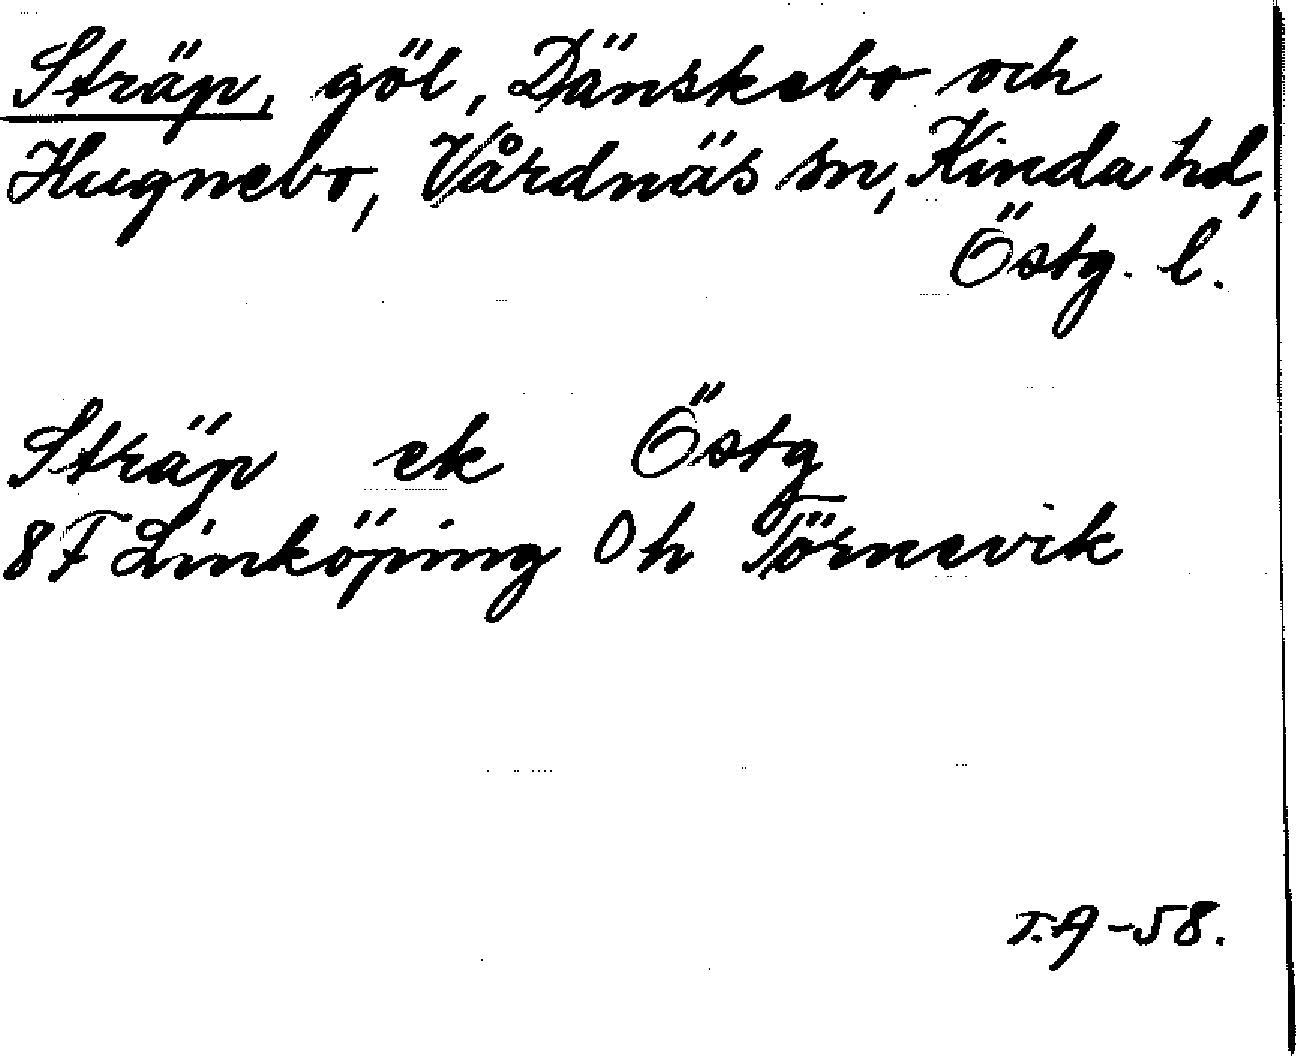 Sträp, göl, Dänskebo och
Hugnebo, Vårdnäs sn, Kinda hd,
Östg. l.
Sträp ek Östg
8F Linköping 0h Törnevik
T.A -58.